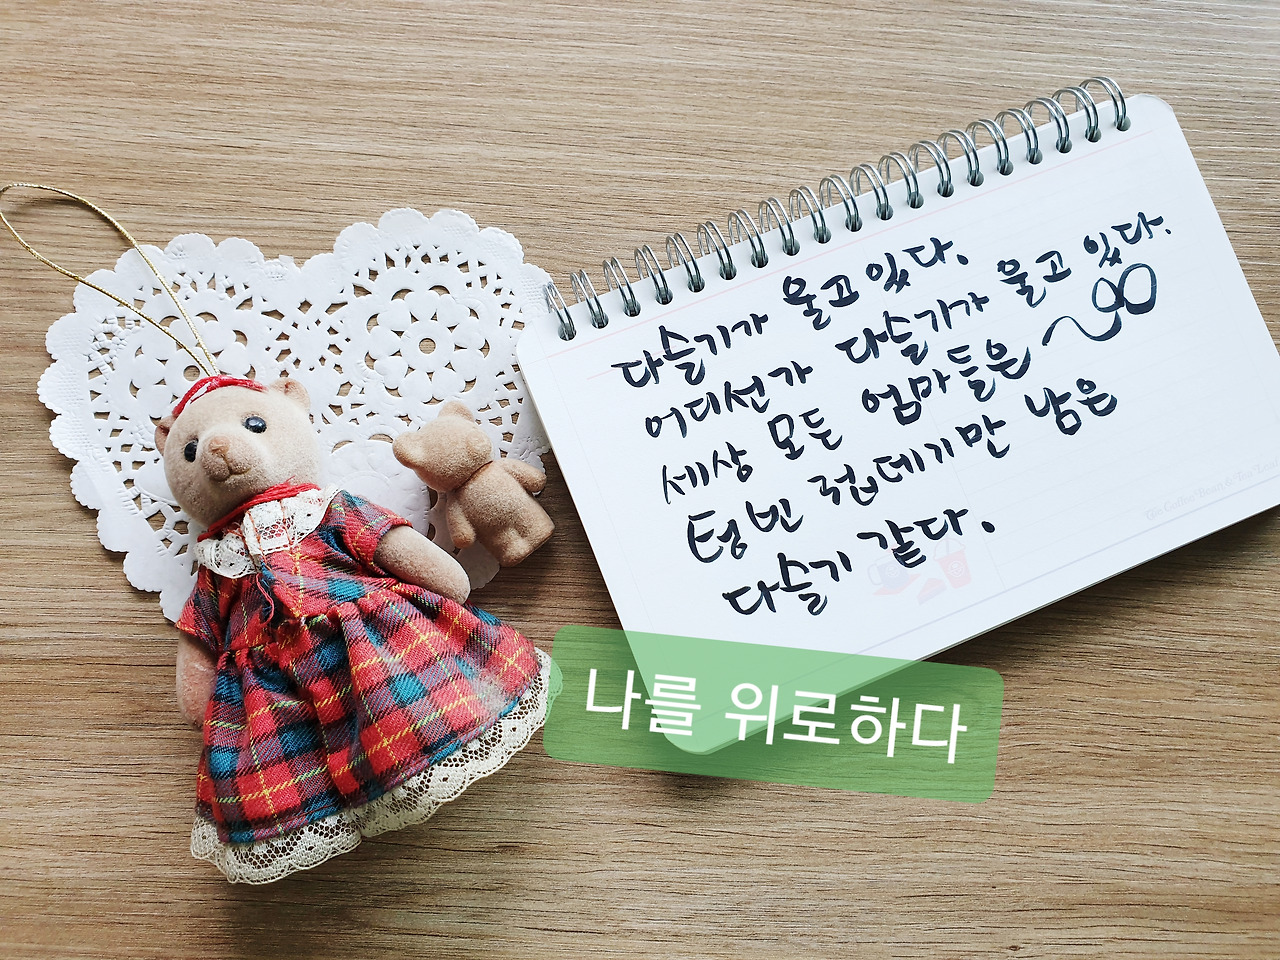 다슬기가 울고있다.
어디선가 다슬기가 울고있다.
세상 모든 엄마들은
텅빈 껍데기만 남은
다슬기 같다.
The Coffee Bean & Tea Leaf
나를 위로하다